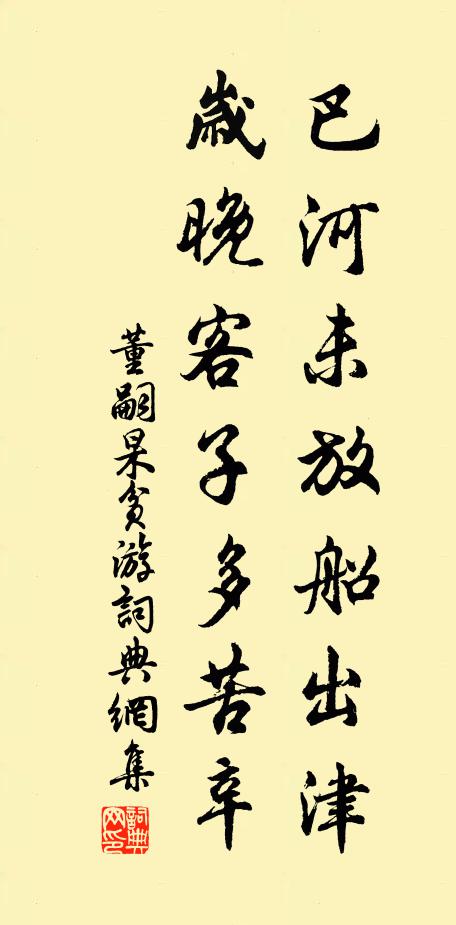 巴河未放船出津
歲晚客子多苦辛
董嗣杲貧游詞典網集
詞典網印